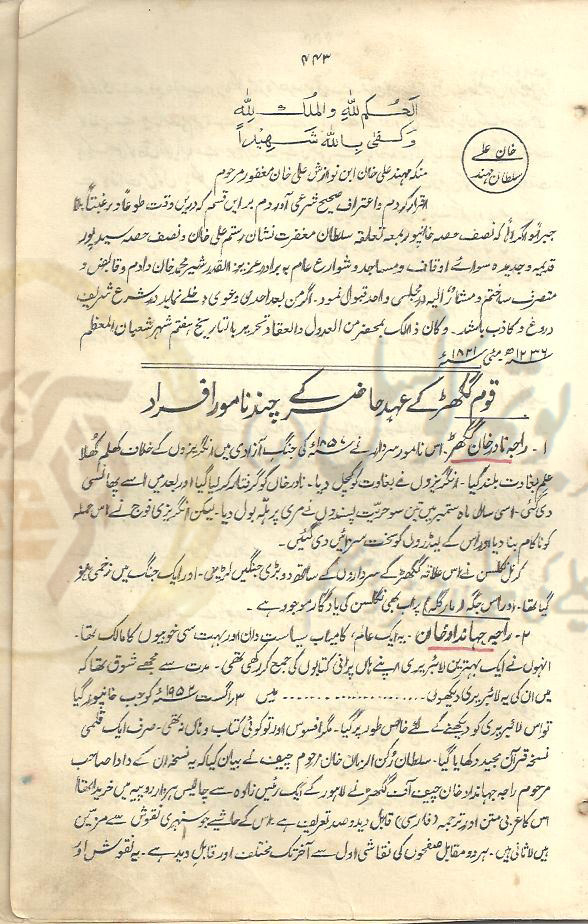 ۴۴۳
الحکم للہ والملک للہ
وکفیٰ باللہ شہیداً
خان علی
سلطان مہند
منکہ مہند علی خان ابن نوازش علی خان مغفور مرحوم
اقرار کردم و اعتراف صحیح شرعی آوردم بر ایں قسم کہ دریں وقت طوعاً و رغبتاً بلا
جبر و اکراہ کہ نصف حصہ خانپور بمعہ تعلقہ سلطان مغفرت نشان رستم علی خان و نصف حصہ سید پور
قدیمہ و جدیدہ سوائے اوقاف و مساجد و شوارع عام بہ برادر عزیز القدر شیر محمد خان دادم و قابض و
متصرف ساختم و مشارٌ الیہ در مجلسی واحد قبول نمود۔ اگر من بعد احدی دعویٰ و دخلے نماید در شرع شریف
دروغ و کاذب باشد۔ و کان ذالک بمحضر من العدول و العقاد تحریر بالتاریخ ہفتم شہر شعبان المعظم
سنہ ۱۲۳۶ھ مئی ۱۸۲۱ئہ
قوم گکھڑ کے عہد حاضر کے چند نامور افراد
۱۔ راجہ نادر خان گکھڑ۔ اس نامور سردار نے ۱۸۵۷ئہ کی جنگ آزادی میں انگریزوں کے خلاف کھلم کھلا
علم بغاوت بلند کیا۔ انگریزوں نے بغاوت کو کچل دیا۔ نادر خان کو گرفتار کر لیا گیا اور بعد میں اسے پھانسی
دی گئی۔ اسی سال ماہ ستمبر میں تین سو حریت پسندوں نے مری پر ہلہ بول دیا۔ لیکن انگریزی فوج نے اس حملہ
کو ناکام بنا دیا اور اس کے لیڈروں کو سخت سزائیں دی گئیں۔
کرنل نکلسن نے اس علاقہ گکھڑ کے سرداروں کے ساتھ دو بڑی جنگیں لڑیں۔ اور ایک جنگ میں زخمی ہو
گیا تھا۔ اور اس جگہ (مارگلہ) پر اب بھی نکلسن کی یادگار موجود ہے۔
۲۔ راجہ جہانداد خان۔ یہ ایک عالم، کامیاب سیاست دان اور بہت سی خوبیوں کا مالک تھا۔
انہوں نے ایک بہترین لائبریری اپنے ہاں پرانی کتابوں کی جمع کر رکھی تھی۔ مدت سے مجھے شوق تھا کہ
میں ان کی یہ لائبریری دیکھوں .................... میں ۳ اگست ۱۹۵۲ئہ کو جب خانپور گیا
تو اس لائبریری کو دیکھنے کے لئے خاص طور پر گیا۔ مگر افسوس اور تو کوئی کتاب وہاں نہ تھی۔ صرف ایک قلمی
نسخہ قرآن مجید دکھایا گیا۔ سلطان رکن الزمان خان مرحوم چیف نے بیان کیا کہ یہ نسخہ ان کے دادا صاحب
مرحوم راجہ جہانداد خان چیف آف گکھڑ نے لاہور کے ایک رئیس زادہ سے چالیس ہزار روپیہ میں خریدا تھا
اس کا عربی متن اور ترجمہ (فارسی) قابل دید و صد تعریف ہے۔ اس کے حاشیے جو سنہری نقوش سے مزین
ہیں لاثانی ہیں۔ ہر دو مقابل صفحوں کی نقاشی اول سے آخر تک مختلف اور قابل دید ہے۔ یہ نقوش اور